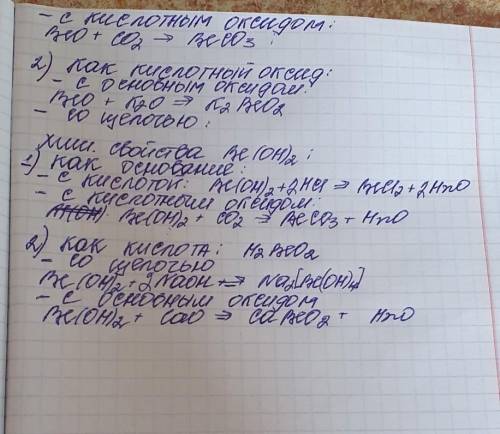 - с кислотным оксидом:
BeO + CO2 → BeCO3 ;
2) как кислотный оксид:
- с основным оксидом:
BeO + K2O ⇒ K2BeO2
- со щелочью:
хим. свойства Be(OH)2 :
1) как основание:
- с кислотой: Be(OH)2 + 2HCl ⇒ BeCl2 + 2H2O
- с кислотным оксидом:
Be(OH)2 + CO2 → BeCO3 + H2O
2) как кислота: H2BeO2
- со щелочью
Be(OH)2 + 2NaOH → Na2[Be(OH)4]
- с основным оксидом
Be(OH)2 + CaO ⇒ CaBeO2 + H2O